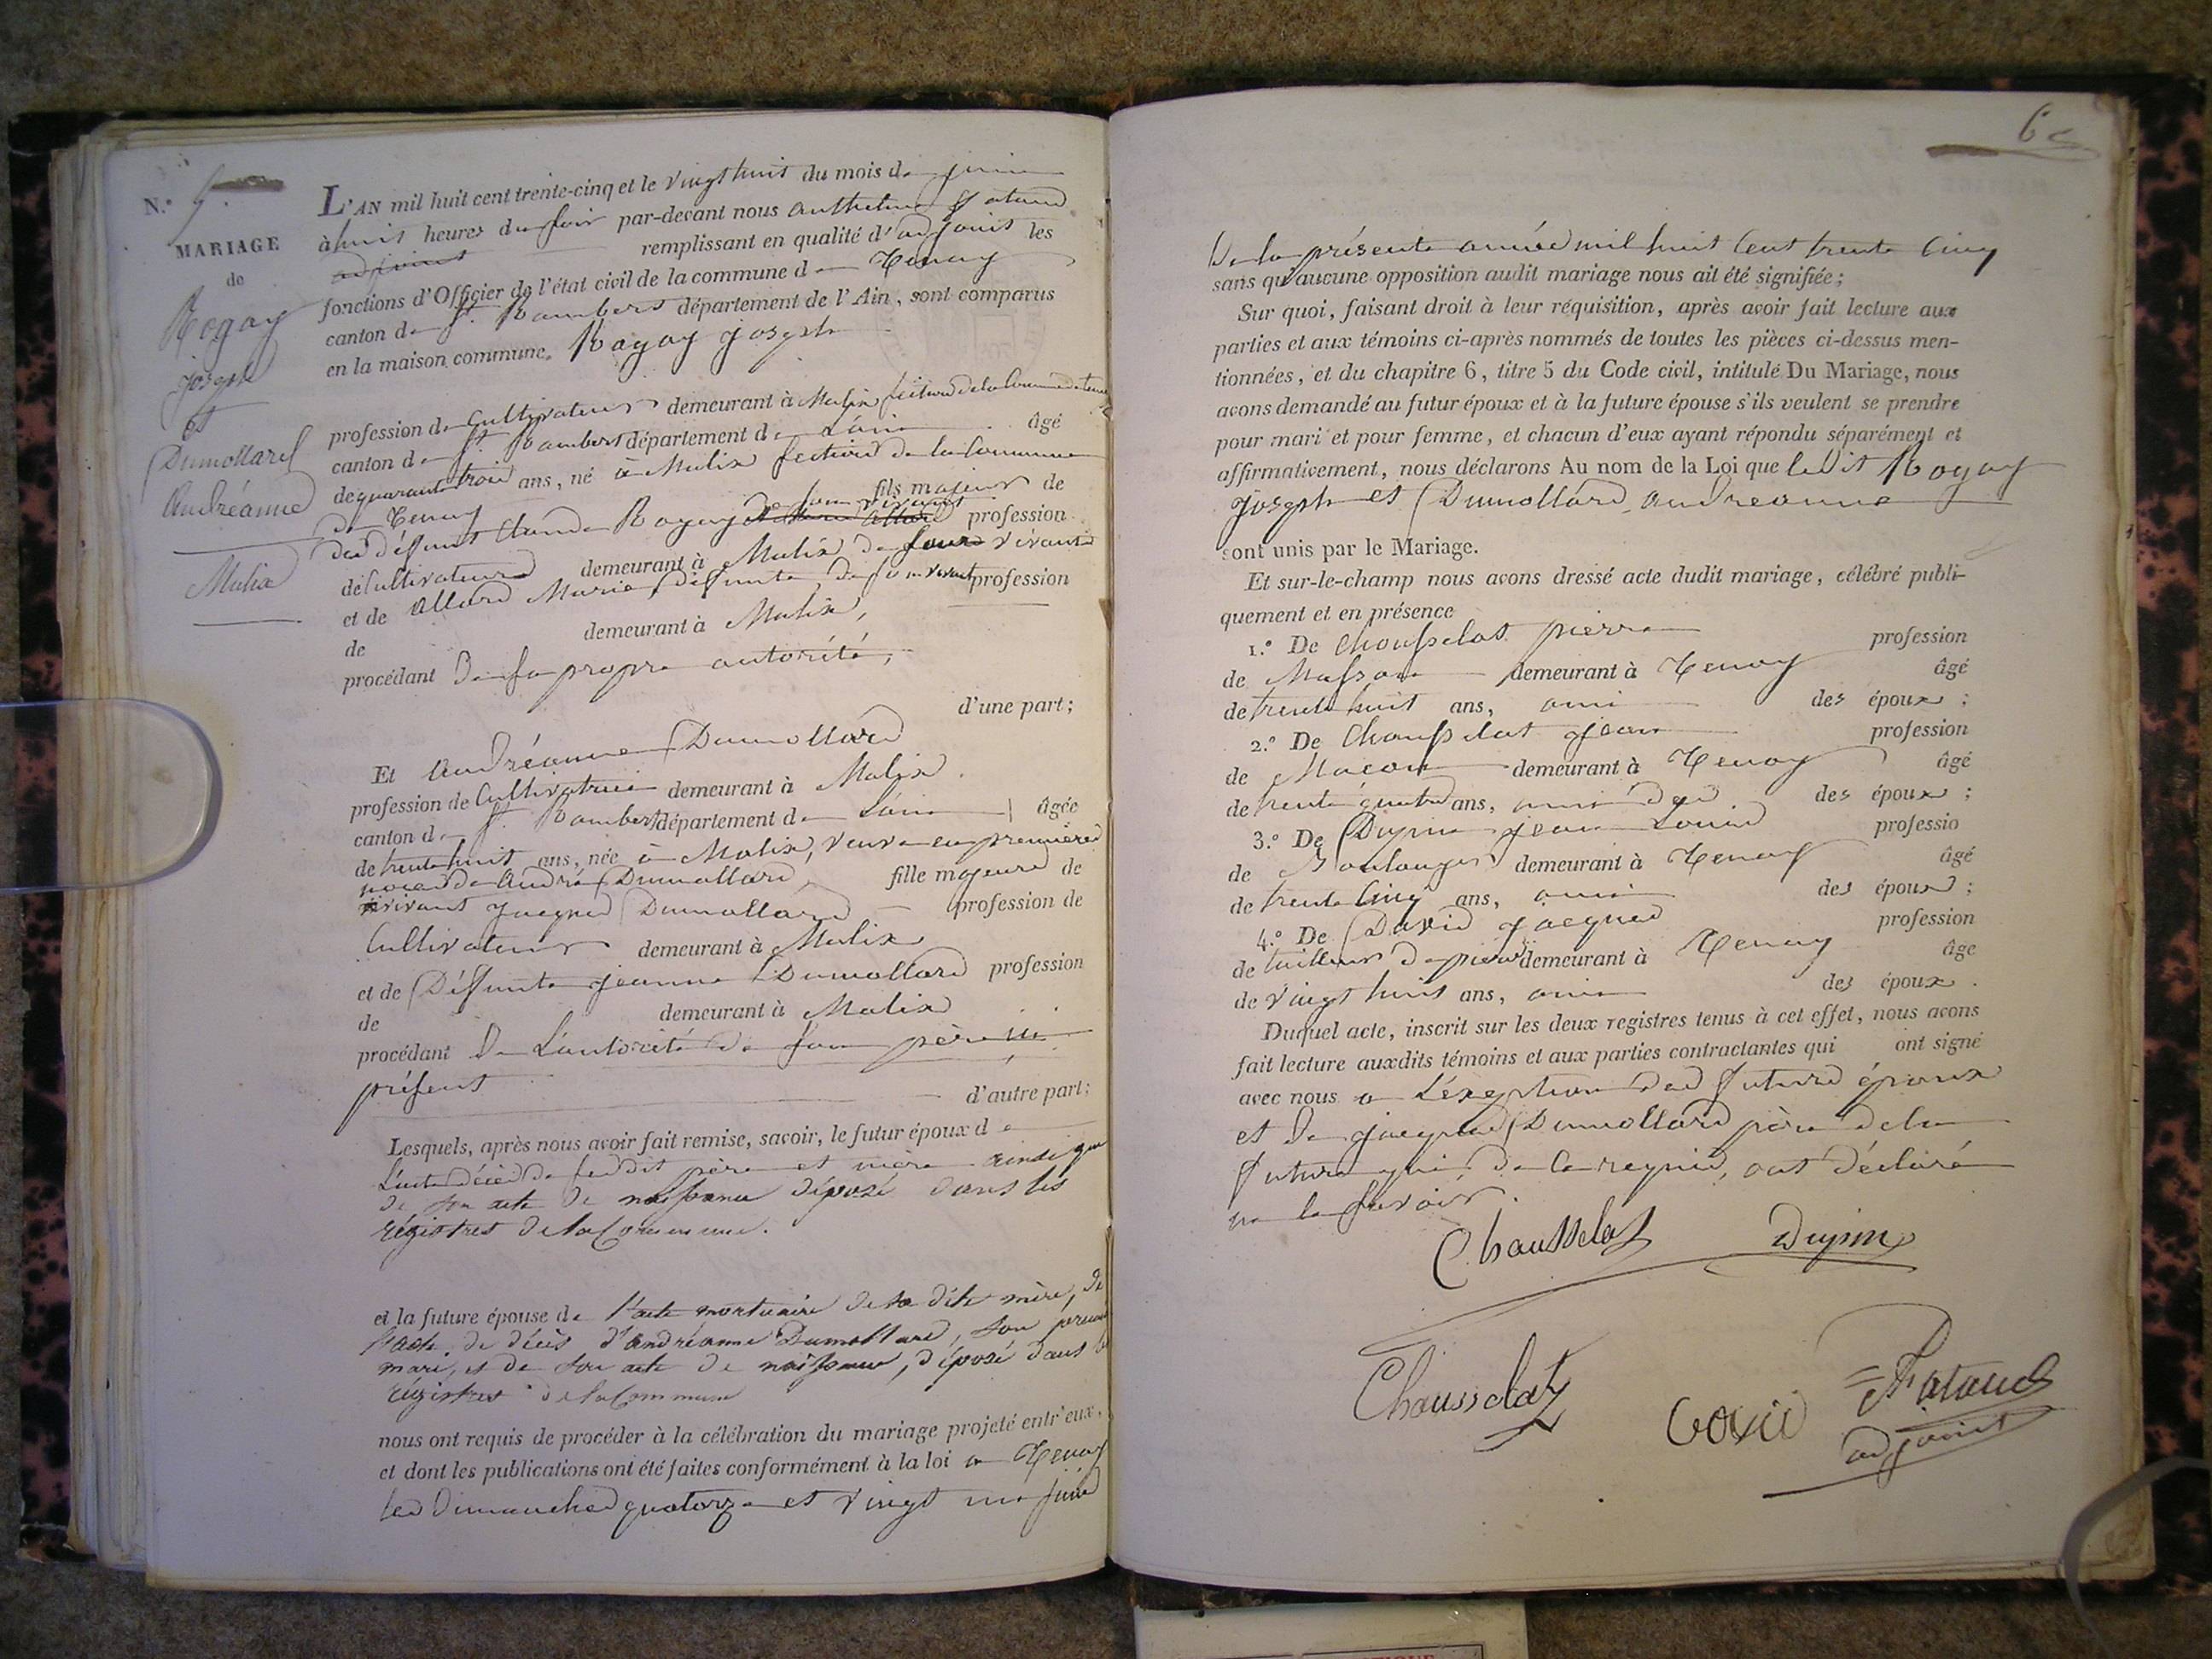 N.° 5.
MARIAGE
de
Rogay
joseph
et
Dumollard
Andréanne
Malix
L'AN mil huit cent trente-cinq et le vingt huit du mois de juin
à huit heures du soir par-devant nous Anthelme Fataud
adjoint remplissant en qualité d'adjoint les
fonctions d'Officier de l'état civil de la commune de Tenay
canton de St. Rambert département de l'Ain, sont comparus
en la maison commune. Rogay joseph
profession de Cultivateur demeurant à Malix section de la Commune de Tenay
canton de St. Rambert département de L'ain âgé
de quarante trois ans, né à Malix section de la Commune
de Tenay fils majeur de
des défunt Claude Rogay de son vivant profession
de Cultivateur demeurant à Malix de vivant
et de Allard Marie défunte, de son vivant profession
de demeurant à Malix,
procédant De sa propre autorité,
d'une part;
Et Andréanne Dumollard
profession de Cultivatrice demeurant à Malix.
canton de St. Rambert département de L'ain âgée
de trente huit ans, née à Malix, veuve en premières
noces de André Dumollard, fille majeure de
vivant Jacques Dumollard profession de
Cultivateur demeurant à Malix
et de Défunte jeanne Dumollard profession
de demeurant à Malix
procédant De L'autorité de son père ici
présent
d'autre part;
Lesquels, après nous avoir fait remise, savoir, le futur époux de
L'acte décès de sesdit père et mère ainsi que
de son acte de naissance déposé dans les
régistres de la Commune.
et la future épouse de l'acte mortuaire de sa dite mère, de
l'acte de décès d'andréanne Dumollard, son premier
mari, et de son acte de naissance, déposé dans les
régistres de la Commune
nous ont requis de procéder à la célébration du mariage projeté entr'eux,
et dont les publications ont été faites conformément à la loi à Tenay
les Dimanches quatorze et vingt un juin
6
De la présente année mil huit Cent trente Cinq
sans qu'aucune opposition audit mariage nous ait été signifiée;
Sur quoi, faisant droit à leur réquisition, après avoir fait lecture aux
parties et aux témoins ci-après nommés de toutes les pièces ci-dessus men-
tionnées, et du chapitre 6, titre 5 du Code civil, intitulé Du Mariage, nous
avons demandé au futur époux et à la future épouse s'ils veulent se prendre
pour mari et pour femme, et chacun d'eux ayant répondu séparément et
affirmativement, nous déclarons Au nom de la Loi que ledit Rogay
Joseph et Dumollard Andreanne
sont unis par le Mariage.
Et sur-le-champ nous avons dressé acte dudit mariage, célébré publi-
quement et en présence
1.° De Chousselat pierre profession
de Masson demeurant à Tenay âgé
de trente huit ans, ami des époux;
2.° De Chousselat jean profession
de Macon demeurant à Tenay âgé
de trente quatre ans, ami des époux;
3.° De Dupin jean Louis professio
de Boulanger demeurant à Tenay âgé
de trente Cinq ans, ami des époux;
4.° De David Jacques profession
de tailleur de pierre demeurant à Tenay âge
de vingt huit ans, ami des époux.
Duquel acte, inscrit sur les deux registres tenus à cet effet, nous avons
fait lecture auxdits témoins et aux parties contractantes qui ont signé
avec nous à L'exeption des futurs époux
et de Jacques Dumollard père de la
future qui de Ce requis, ont déclaré
ne le savoir.
Chausselat Dupin
Chausselat Fataud
adjoint